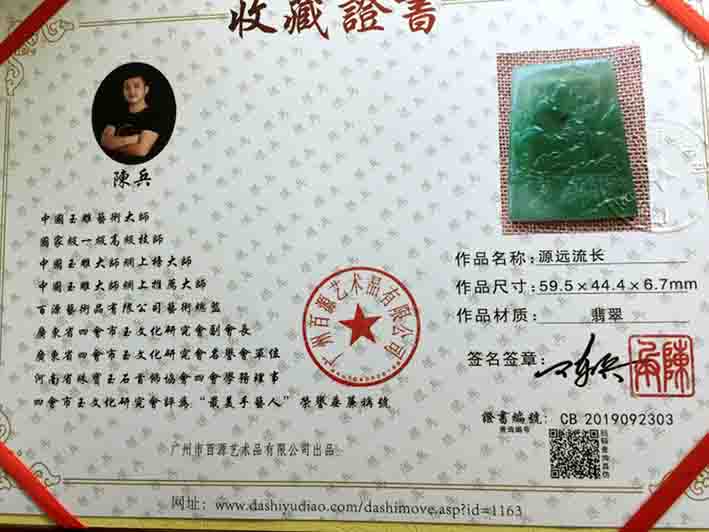 收藏證書
陳兵
中國玉雕藝術大師
國家級一級高級技師
中國玉雕大師網上榜大師
中國玉雕大師網上推薦大師
百源藝術品有限公司藝術總監
廣東省四會市玉文化研究會副會長
廣東省四會市玉文化研究會名譽會單位
河南省珠寶玉石首飾協會四會學務理事
四會市玉文化研究會評為“最美手藝人”榮譽
廣州市百源艺术品有限公司出品
广州百源艺术品有限公司
作品名称：源远流长
作品尺寸：59.5×44.4×6.7mm
作品材质：翡翠
签名签章：
陳兵
證書編號：CB 2019092303
查询编号
扫码查询真伪
网址：www.dashiyudiao.com/dashimove.asp?id=1163